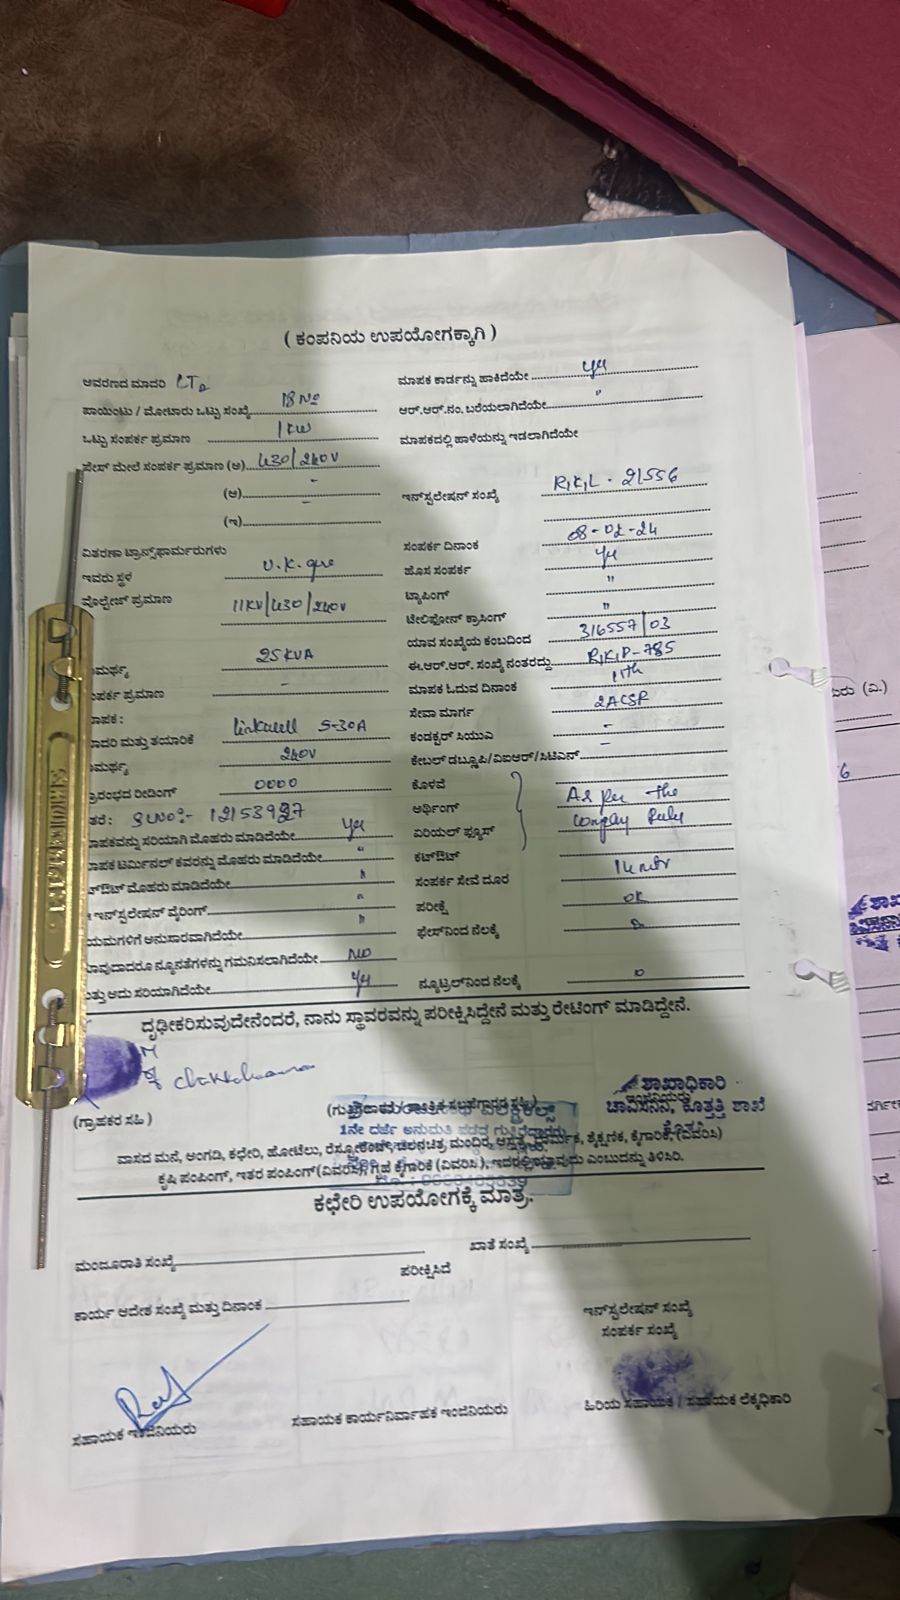 ( ಕಂಪನಿಯ ಉಪಯೋಗಕ್ಕಾಗಿ )
ಆವರಣದ ಮಾದರಿ LT2
ಪಾಯಿಂಟು / ಮೋಟಾರು ಒಟ್ಟು ಸಂಖ್ಯೆ 18 No
ಒಟ್ಟು ಸಂಪರ್ಕ ಪ್ರಮಾಣ 1KW
ಫೇಸ್ ಮೇಲೆ ಸಂಪರ್ಕ ಪ್ರಮಾಣ (ಅ) 430/240V
(ಆ) -
(ಇ) -
ವಿತರಣಾ ಟ್ರಾನ್ಸ್‌ಫಾರ್ಮರುಗಳು
ಇವರು ಸ್ಥಳ V.K.
ವೊಲ್ಟೇಜ್ ಪ್ರಮಾಣ 11KV/430/240V
ಮರ್ಥ್ಯ 25KVA
ಂಪರ್ಕ ಪ್ರಮಾಣ -
ಾಪಕ :
ಾದರಿ ಮತ್ತು ತಯಾರಿಕೆ linkwell 5-30A
ಾಮರ್ಥ್ಯ 240V
್ರಾರಂಭದ ರೀಡಿಂಗ್ 0000
ತರೆ : SLNO:-
ಾಪಕವನ್ನು ಸರಿಯಾಗಿ ಮೊಹರು ಮಾಡಿದೆಯೇ Yes
ಾಪಕ ಟರ್ಮಿನಲ್ ಕವರನ್ನು ಮೊಹರು ಮಾಡಿದೆಯೇ "
ಟ್‌ಔಟ್ ಮೊಹರು ಮಾಡಿದೆಯೇ "
ಇನ್‌ಸ್ಟಲೇಷನ್ ವೈರಿಂಗ್ "
ಯಮಗಳಿಗೆ ಅನುಸಾರವಾಗಿದೆಯೇ "
ಾವುದಾದರೂ ನ್ಯೂನತೆಗಳನ್ನು ಗಮನಿಸಲಾಗಿದೆಯೇ NO
ತ್ತು ಅದು ಸರಿಯಾಗಿದೆಯೇ Yes
ಮಾಪಕ ಕಾರ್ಡನ್ನು ಹಾಕಿದೆಯೇ Yes
ಆರ್.ಆರ್.ನಂ. ಬರೆಯಲಾಗಿದೆಯೇ "
ಮಾಪಕದಲ್ಲಿ ಹಾಳೆಯನ್ನು ಇಡಲಾಗಿದೆಯೇ
ಇನ್‌ಸ್ಟಲೇಷನ್ ಸಂಖ್ಯೆ R,K,L - 21556
ಸಂಪರ್ಕ ದಿನಾಂಕ 08-02-24
ಹೊಸ ಸಂಪರ್ಕ Yes
ಟ್ಯಾಪಿಂಗ್ "
ಟೆಲಿಫೋನ್ ಕ್ರಾಸಿಂಗ್ "
ಯಾವ ಸಂಖ್ಯೆಯ ಕಂಬದಿಂದ 316557/03
ಈ.ಆರ್.ಆರ್. ಸಂಖ್ಯೆ ನಂತರದ್ದು R,K,P-785
ಮಾಪಕ ಓದುವ ದಿನಾಂಕ 11th
ಸೇವಾ ಮಾರ್ಗ 2ACSR
ಕಂಡಕ್ಟರ್ ಸಿಯುಎ -
ಕೇಬಲ್ ಡಬ್ಲ್ಯೂಪಿ/ವಿಐಆರ್/ಸಿಟಿಎಸ್ -
ಕೊಳವೆ
ಅರ್ಥಿಂಗ್ As per the
ಏರಿಯಲ್ ಫ್ಯೂಸ್ Company Rules
ಕಟ್‌ಔಟ್
ಸಂಪರ್ಕ ಸೇವೆ ದೂರ 14 mtr
ಪರೀಕ್ಷೆ OK
ಫೇಸ್‌ನಿಂದ ನೆಲಕ್ಕೆ
ನ್ಯೂಟ್ರಲ್‌ನಿಂದ ನೆಲಕ್ಕೆ
ದೃಢೀಕರಿಸುವುದೇನೆಂದರೆ, ನಾನು ಸ್ಥಾವರವನ್ನು ಪರೀಕ್ಷಿಸಿದ್ದೇನೆ ಮತ್ತು ರೇಟಿಂಗ್ ಮಾಡಿದ್ದೇನೆ.
ಶಾಖಾಧಿಕಾರಿ
ಚಾವಿಸನಿನಿ, ಕೊತ್ತತ್ತಿ ಶಾಖೆ
(ಗ್ರಾಹಕರ ಸಹಿ )
1ನೇ ದರ್ಜೆ ಅನುಮತಿ ಪಡೆದ ಗುತ್ತಿಗೆದಾರರು
ವಾಸದ ಮನೆ, ಅಂಗಡಿ, ಕಛೇರಿ, ಹೋಟೆಲು, ರೆಸ್ಟೋರೆಂಟ್, ಚಲನಚಿತ್ರ ಮಂದಿರ, ಆಸ್ಪತ್ರೆ, ಧಾರ್ಮಿಕ, ಶೈಕ್ಷಣಿಕ, ಕೈಗಾರಿಕೆ, (ವಿವರಿಸಿ)
ಕೃಷಿ ಪಂಪಿಂಗ್, ಇತರ ಪಂಪಿಂಗ್ (ವಿವರಿಸಿ), ಗೃಹ ಕೈಗಾರಿಕೆ (ವಿವರಿಸಿ), ಇದರಲ್ಲಿ ಯಾವುದು ಎಂಬುದನ್ನು ತಿಳಿಸಿರಿ.
ಕಛೇರಿ ಉಪಯೋಗಕ್ಕೆ ಮಾತ್ರ.
ಮಂಜೂರಾತಿ ಸಂಖ್ಯೆ ಖಾತೆ ಸಂಖ್ಯೆ
ಪರೀಕ್ಷಿಸಿದೆ
ಕಾರ್ಯ ಆದೇಶ ಸಂಖ್ಯೆ ಮತ್ತು ದಿನಾಂಕ
ಇನ್‌ಸ್ಟಲೇಷನ್ ಸಂಖ್ಯೆ
ಸಂಪರ್ಕ ಸಂಖ್ಯೆ
ಸಹಾಯಕ ಇಂಜಿನಿಯರು ಸಹಾಯಕ ಕಾರ್ಯನಿರ್ವಾಹಕ ಇಂಜಿನಿಯರು ಹಿರಿಯ ಸಹಾಯಕ / ಸಹಾಯಕ ಲೆಕ್ಕಧಿಕಾರಿ